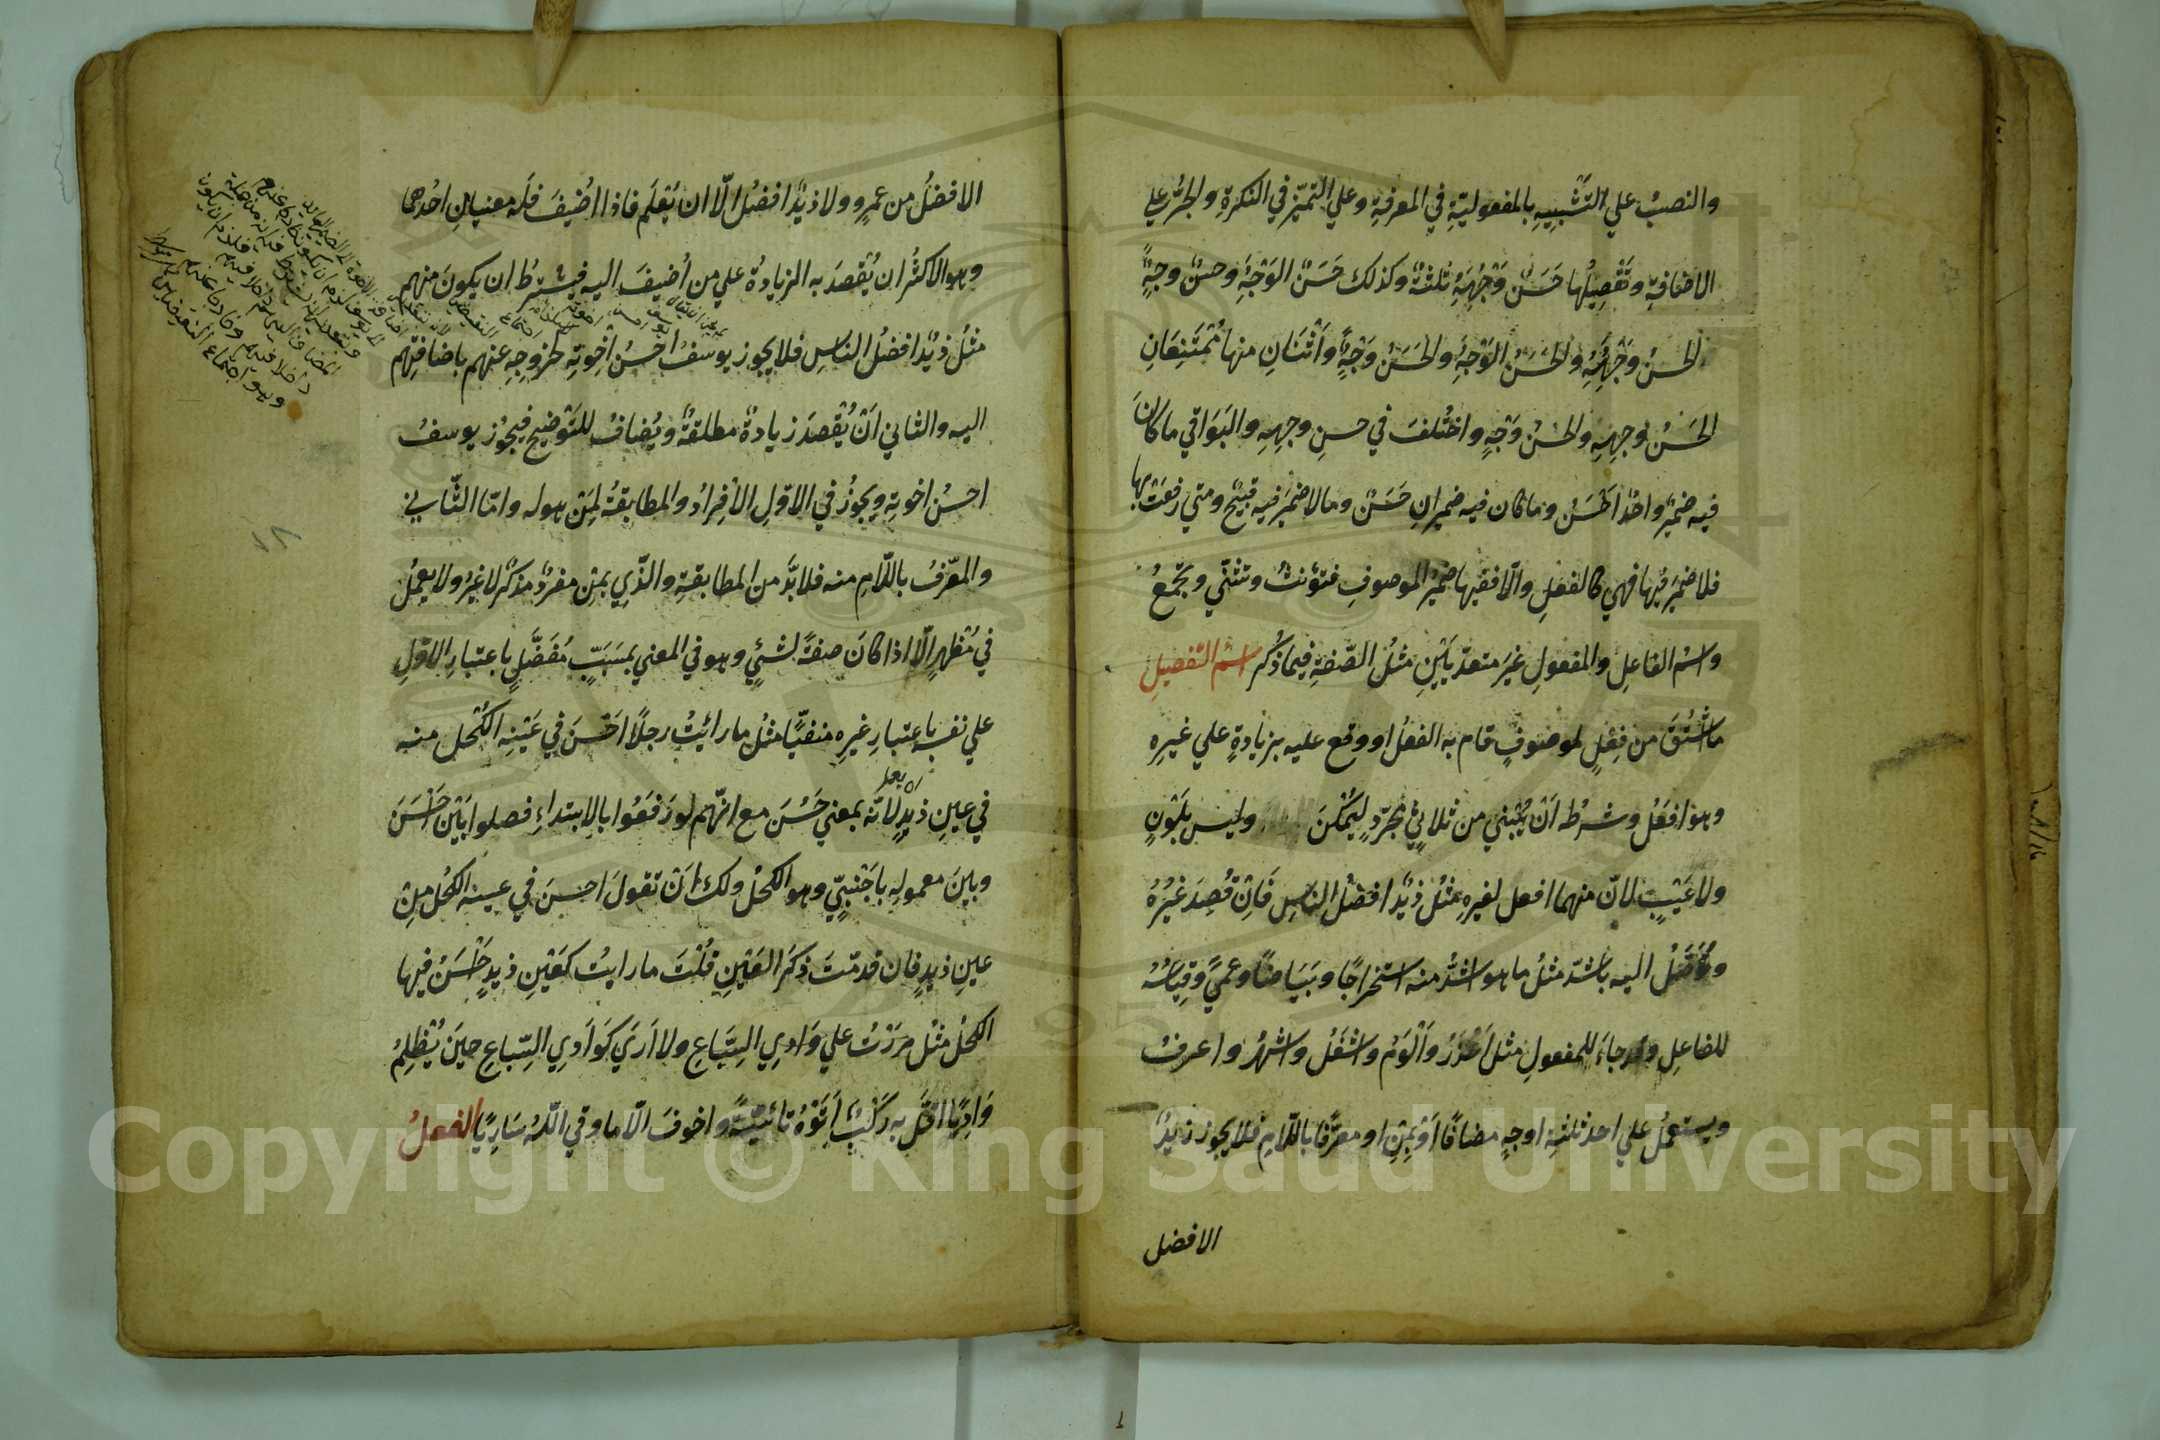 والنصبُ علي التَّشْبِيهِ بالمفعوليّةِ في المعرفةِ وعلي التميّزِ في النكرةِ والجرُّ علي
الاضافةِ وتَفْصِيلُها حَسَنٌ وَجْهُهُ ثلثةٌ وكذلك حَسَنُ الوَجْهِ وحسنٌ وجهٌ
الحسنُ وَجْهُهُ والحَسَنُ الوَجْهِ والحَسَنُ وَجْهٍ واَثْنَانِ منها مُمْتَنِعَانِ
الحَسَنُ وجهِهِ والحسنُ وَجْهٍ واختُلفَ في حسنِ وجهِهِ والبَوَاقي ماكانَ
فيه ضميرٌ واحدٌ اَحْسَنُ وماكان فيه ضميرانِ حَسَنٌ ومالا ضميرَ فيه قبيحٌ ومتي رفعتَ بها
فلا ضميرَ فيها فهي كالفعلِ والّا ففيها ضميرُ الموصوفِ فتؤنثُ وتثنّي وتجمعُ
واسمُ الفاعلِ والمفعولِ غيرَ متعدّيَيْنِ مثلُ الصّفةِ فيما ذُكر اسمُ التّفصيلِ
ما اشْتُقَّ من فِعْلٍ لموصوفٍ قام به الفعلُ او وقع عليه بزيادةٍ علي غيرِه
وهو افعَلُ وشرطُه اَنْ يُبْنيَ من ثلاثيٍّ مجرّدٍ ليُمْكِنَ وليس بلَوْنٍ
ولا عَيْبٍ لانّ منهما افعل لغيرِه مثلُ زيدٌ افضلُ الناسِ فَاِنْ قُصِدَ غيرُهُ
وتُوُصِّلُ اليه باشدّ مثلُ ما هو اشدُّ منه استخراجًا وبَيَاضًا وعَمًي وقِيَاسُهُ
للفاعلِ وقد جاءَ للمفعولِ مثل اَعْذَرُ واَلْوَمُ واشْغَلُ واشهرُ واعرفُ
ويستعملُ علي احد ثلثةِ اوجهٍ مضافًا اَوْ بِمِنْ او معرّفًا باللّامِ فلا يجوز زيدٌ
الافضل
الافضلُ من عمرٍو ولا زيدٌ افضلُ الّا ان يُعْلَمَ فاذا اُضيفَ فلَه معنيانِ احدُهما
وهو الاكثرُ ان يُقصدَ به الزيادةُ علي من اُضيفَ اليه فيشترطُ ان يكونَ منهم
مثلُ زيدٌ افضلُ الناسِ فلا يجوز يوسفُ احسنُ اخوتِه لخروجِه عنهم باضافتِهم
اليه والثاني اَنْ يُقْصدَ زيادةٌ مطلقةٌ ويُضافُ للتَّوْضيحِ فيجوز يوسفُ
احسنُ اخوتِه ويجوزُ في الاوّلِ الاِفْرادُ والمطابقةُ لِمَنْ هوله وامّا الثّاني
والمعرّفُ باللّامِ منه فلابدَّ من المطابقةِ والذّي بمِنْ مفردٌ مذكّرٌ لاغيرُ ولا يعملُ
في مُظْهرٍ الّا اذا كانَ صفةً لشئٍ وهو في المعني بمسَبَبٍ مُفَضَّلٍ باعتبارِ الاوّلِ
علي نفسه باعتبارِ غيرِه منفيًّا مثلُ مارأيتُ رجلًا احْسنَ في عَيْنِه الكُحلُ منه
في عينِ زيدٍ لانّه بمعني حَسُنَ مع انّهم لو رَفَعُوا بالاِبتداءِ فصلوا بَيْنَ احْسَنَ
وبينَ معمولِه باَجْنبيٍّ وهو الكحلُ ولك اَنْ تقولَ احسنَ في عينه الكحُلُ مِنْ
عينِ زيدٍ فان قدّمتَ ذكرَ العَيْنِ قُلْتَ مارايتُ كعَيْنِ زيدٍ اَحْسَنَ فيها
الكحلُ مثلُ مرَرْتُ علي وَادِي السِّبَاعِ ولا اَرَي كَوَادِي السِّباعِ حِينَ يُظْلِمُ
وَادِيًا اقلَّ به رَكْبٌ اَتَوْهُ تائيّةً واخوفَ الّا ما وقي اللّهُ سَارِيًا الفعلُ
Copyright © King Saud University